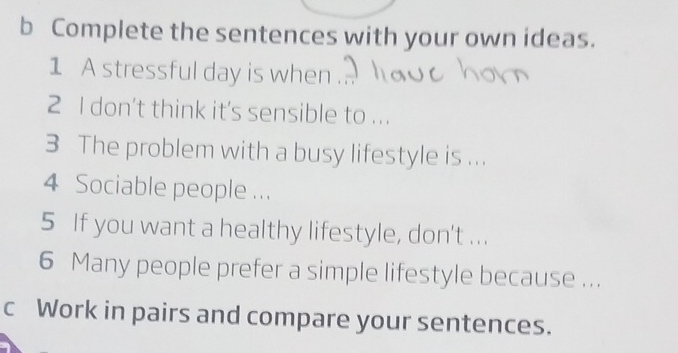 b Complete the sentences with your own ideas.
1 A stressful day is when ... I have
2 I don't think it's sensible to ...
3 The problem with a busy lifestyle is ...
4 Sociable people ...
5 If you want a healthy lifestyle, don't ...
6 Many people prefer a simple lifestyle because ...
c Work in pairs and compare your sentences.